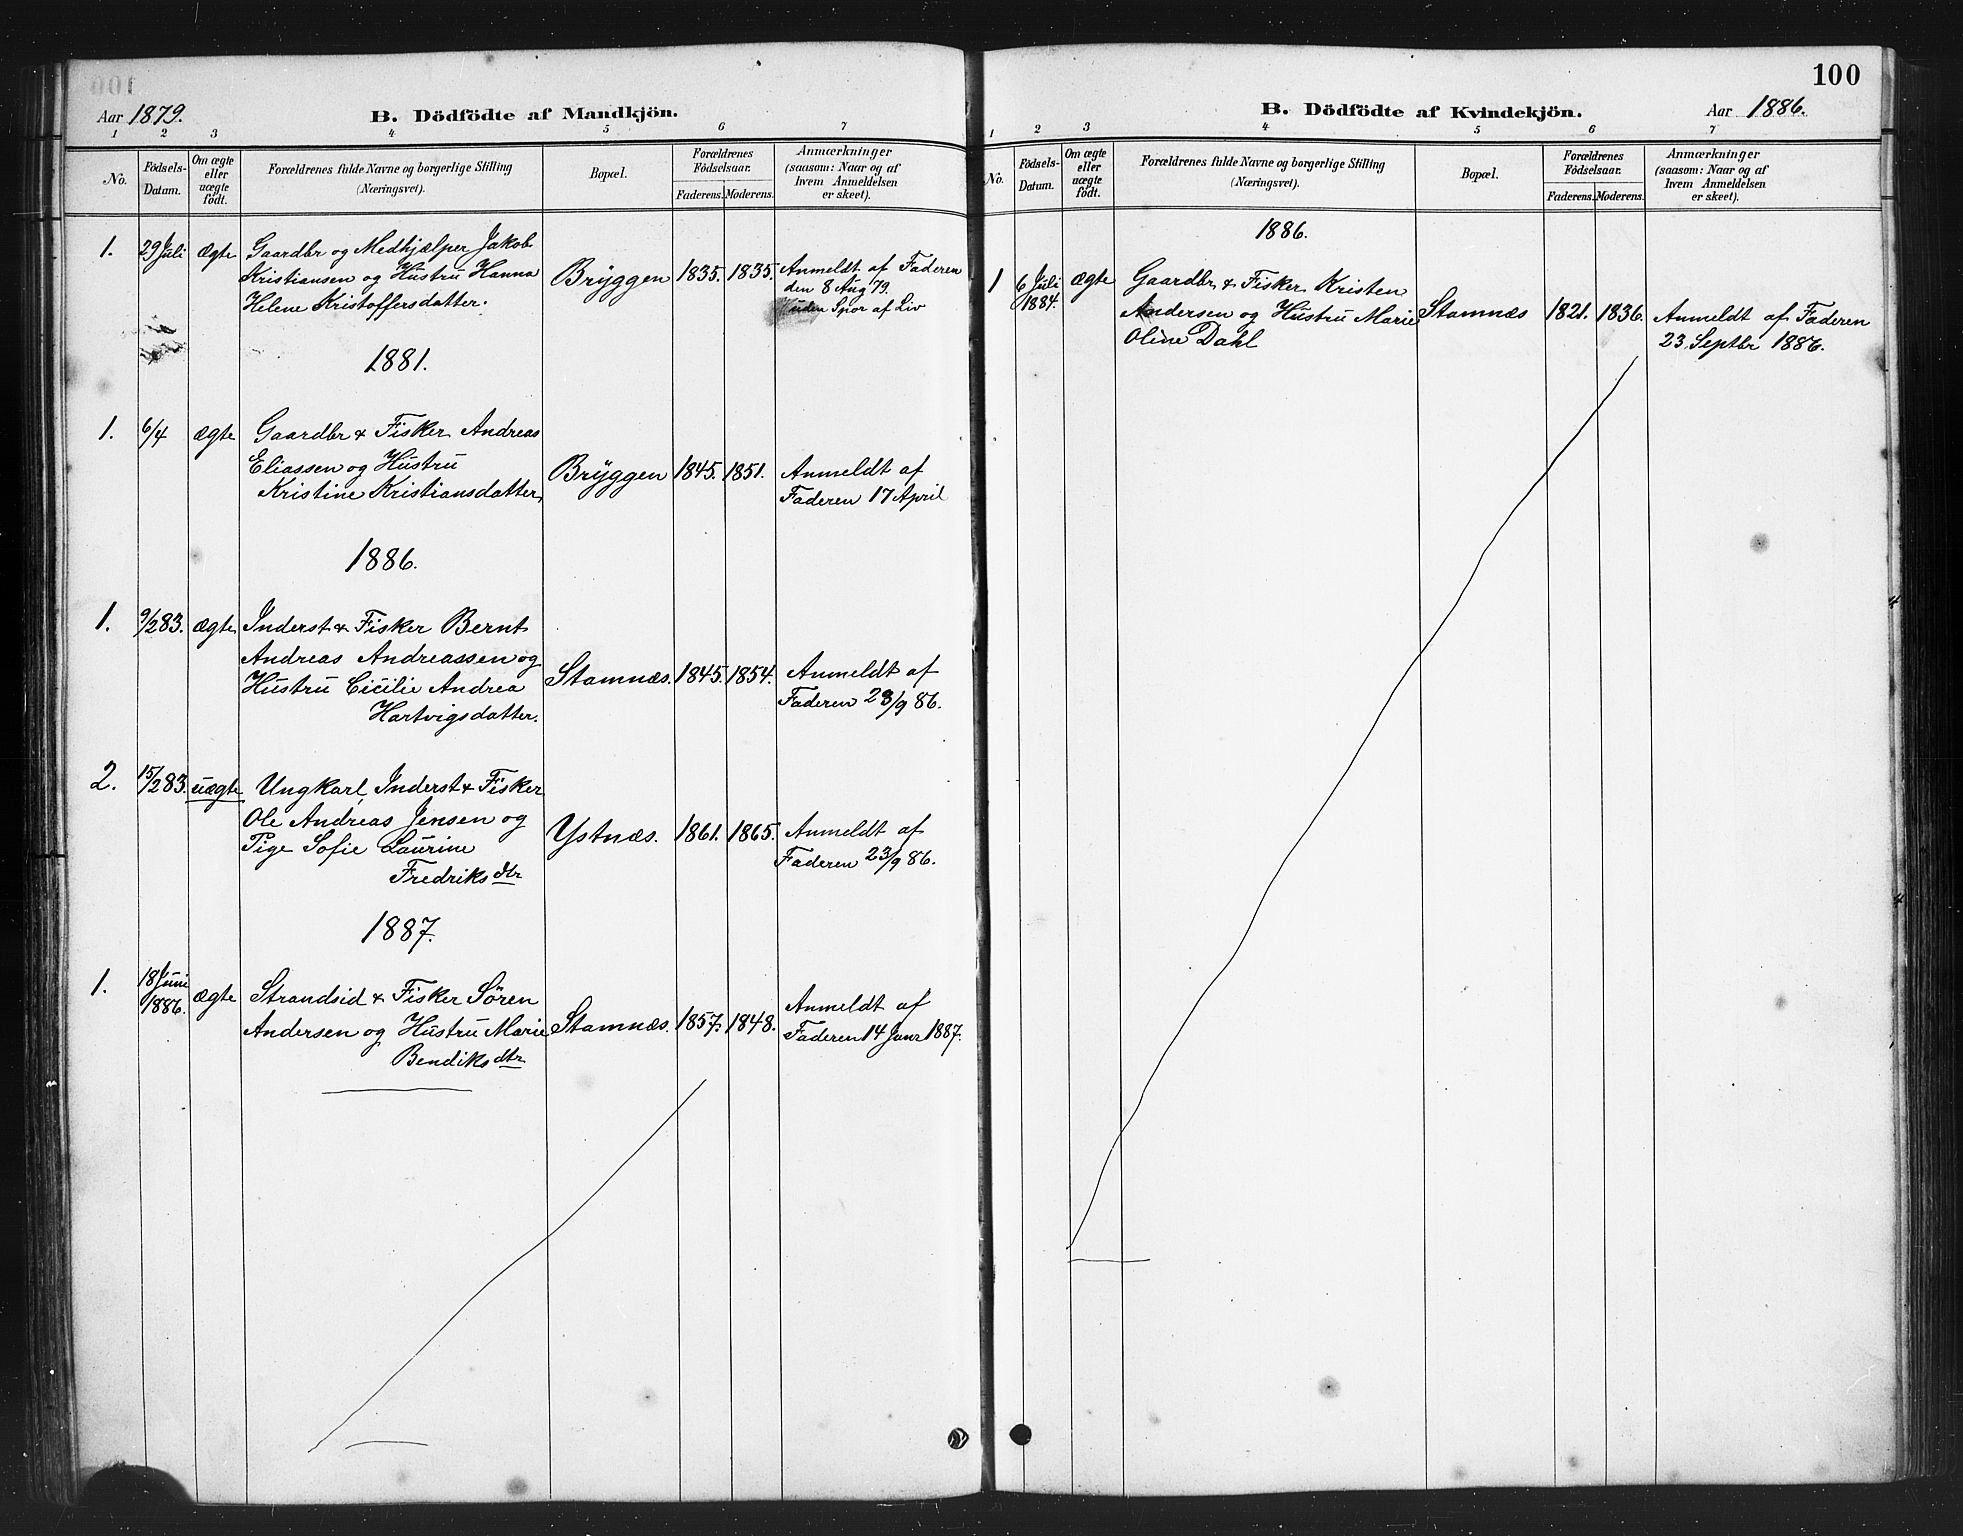 Aar 1879.
B. Dödfödte af Mandkjön.
1 2 3 4 5 6 7
No.
Födsels-Datum.
Om ægte eller uægte födt.
Forældrenes fulde Navne og borgerlige Stilling (Næringsvei).
Bopæl.
Forældrenes Födselsaar.
Faderens. Moderens.
Anmærkninger (saasom: Naar og af hvem Anmeldelsen er skeet).
1. 29 Juli ægte Gaardbr og Medhjælper Jakob
Kristiansen og Hustru Hanna
Helene Kristoffersdatter.
Bryggen 1835. 1835. Anmeldt af Faderen
den 8 Aug 79.
uden Spor af Liv
1881.
1. 6/4 ægte Gaardbr & Fisker Andreas
Eliassen og Hustru
Kristine Kristiansdatter,
Bryggen 1845. 1851. Anmeldt af
Faderen 17 April
1886.
1. 9/2 83. ægte Inderst & Fisker Bernt
Andreas Andreassen og
Hustru Cicilie Andrea
Hartvigsdatter.
Stamnæs. 1845. 1854. Anmeldt af
Faderen 23/9 86.
2. 15/2 83. uægte Ungkarl, Inderst & Fisker
Ole Andreas Jensen og
Pige Sofie Laurine
Fredriksdtr
Ystnæs. 1861. 1865. Anmeldt af
Faderen 23/9 86.
1887.
1. 18 Juni 1886. ægte Strandsid & Fisker Sören
Andersen og Hustru Marie
Bendiksdtr
Stamnæs. 1857. 1848. Anmeldt af
Faderen 14 Janr 1887.
100
B. Dödfödte af Kvindekjön.
Aar 1886.
1 2 3 4 5 6 7
No.
Födsels-Datum.
Om ægte eller uægte födt.
Forældrenes fulde Navne og borgerlige Stilling (Næringsvei).
Bopæl.
Forældrenes Födselsaar.
Faderens. Moderens.
Anmærkninger (saasom: Naar og af hvem Anmeldelsen er skeet).
1886.
1 6 Juli 1884. ægte Gaardbr & Fisker Kristen
Andersen og Hustru Marie
Oline Dahl
Stamnæs 1821. 1836. Anmeldt af Faderen
23 Septbr 1886.